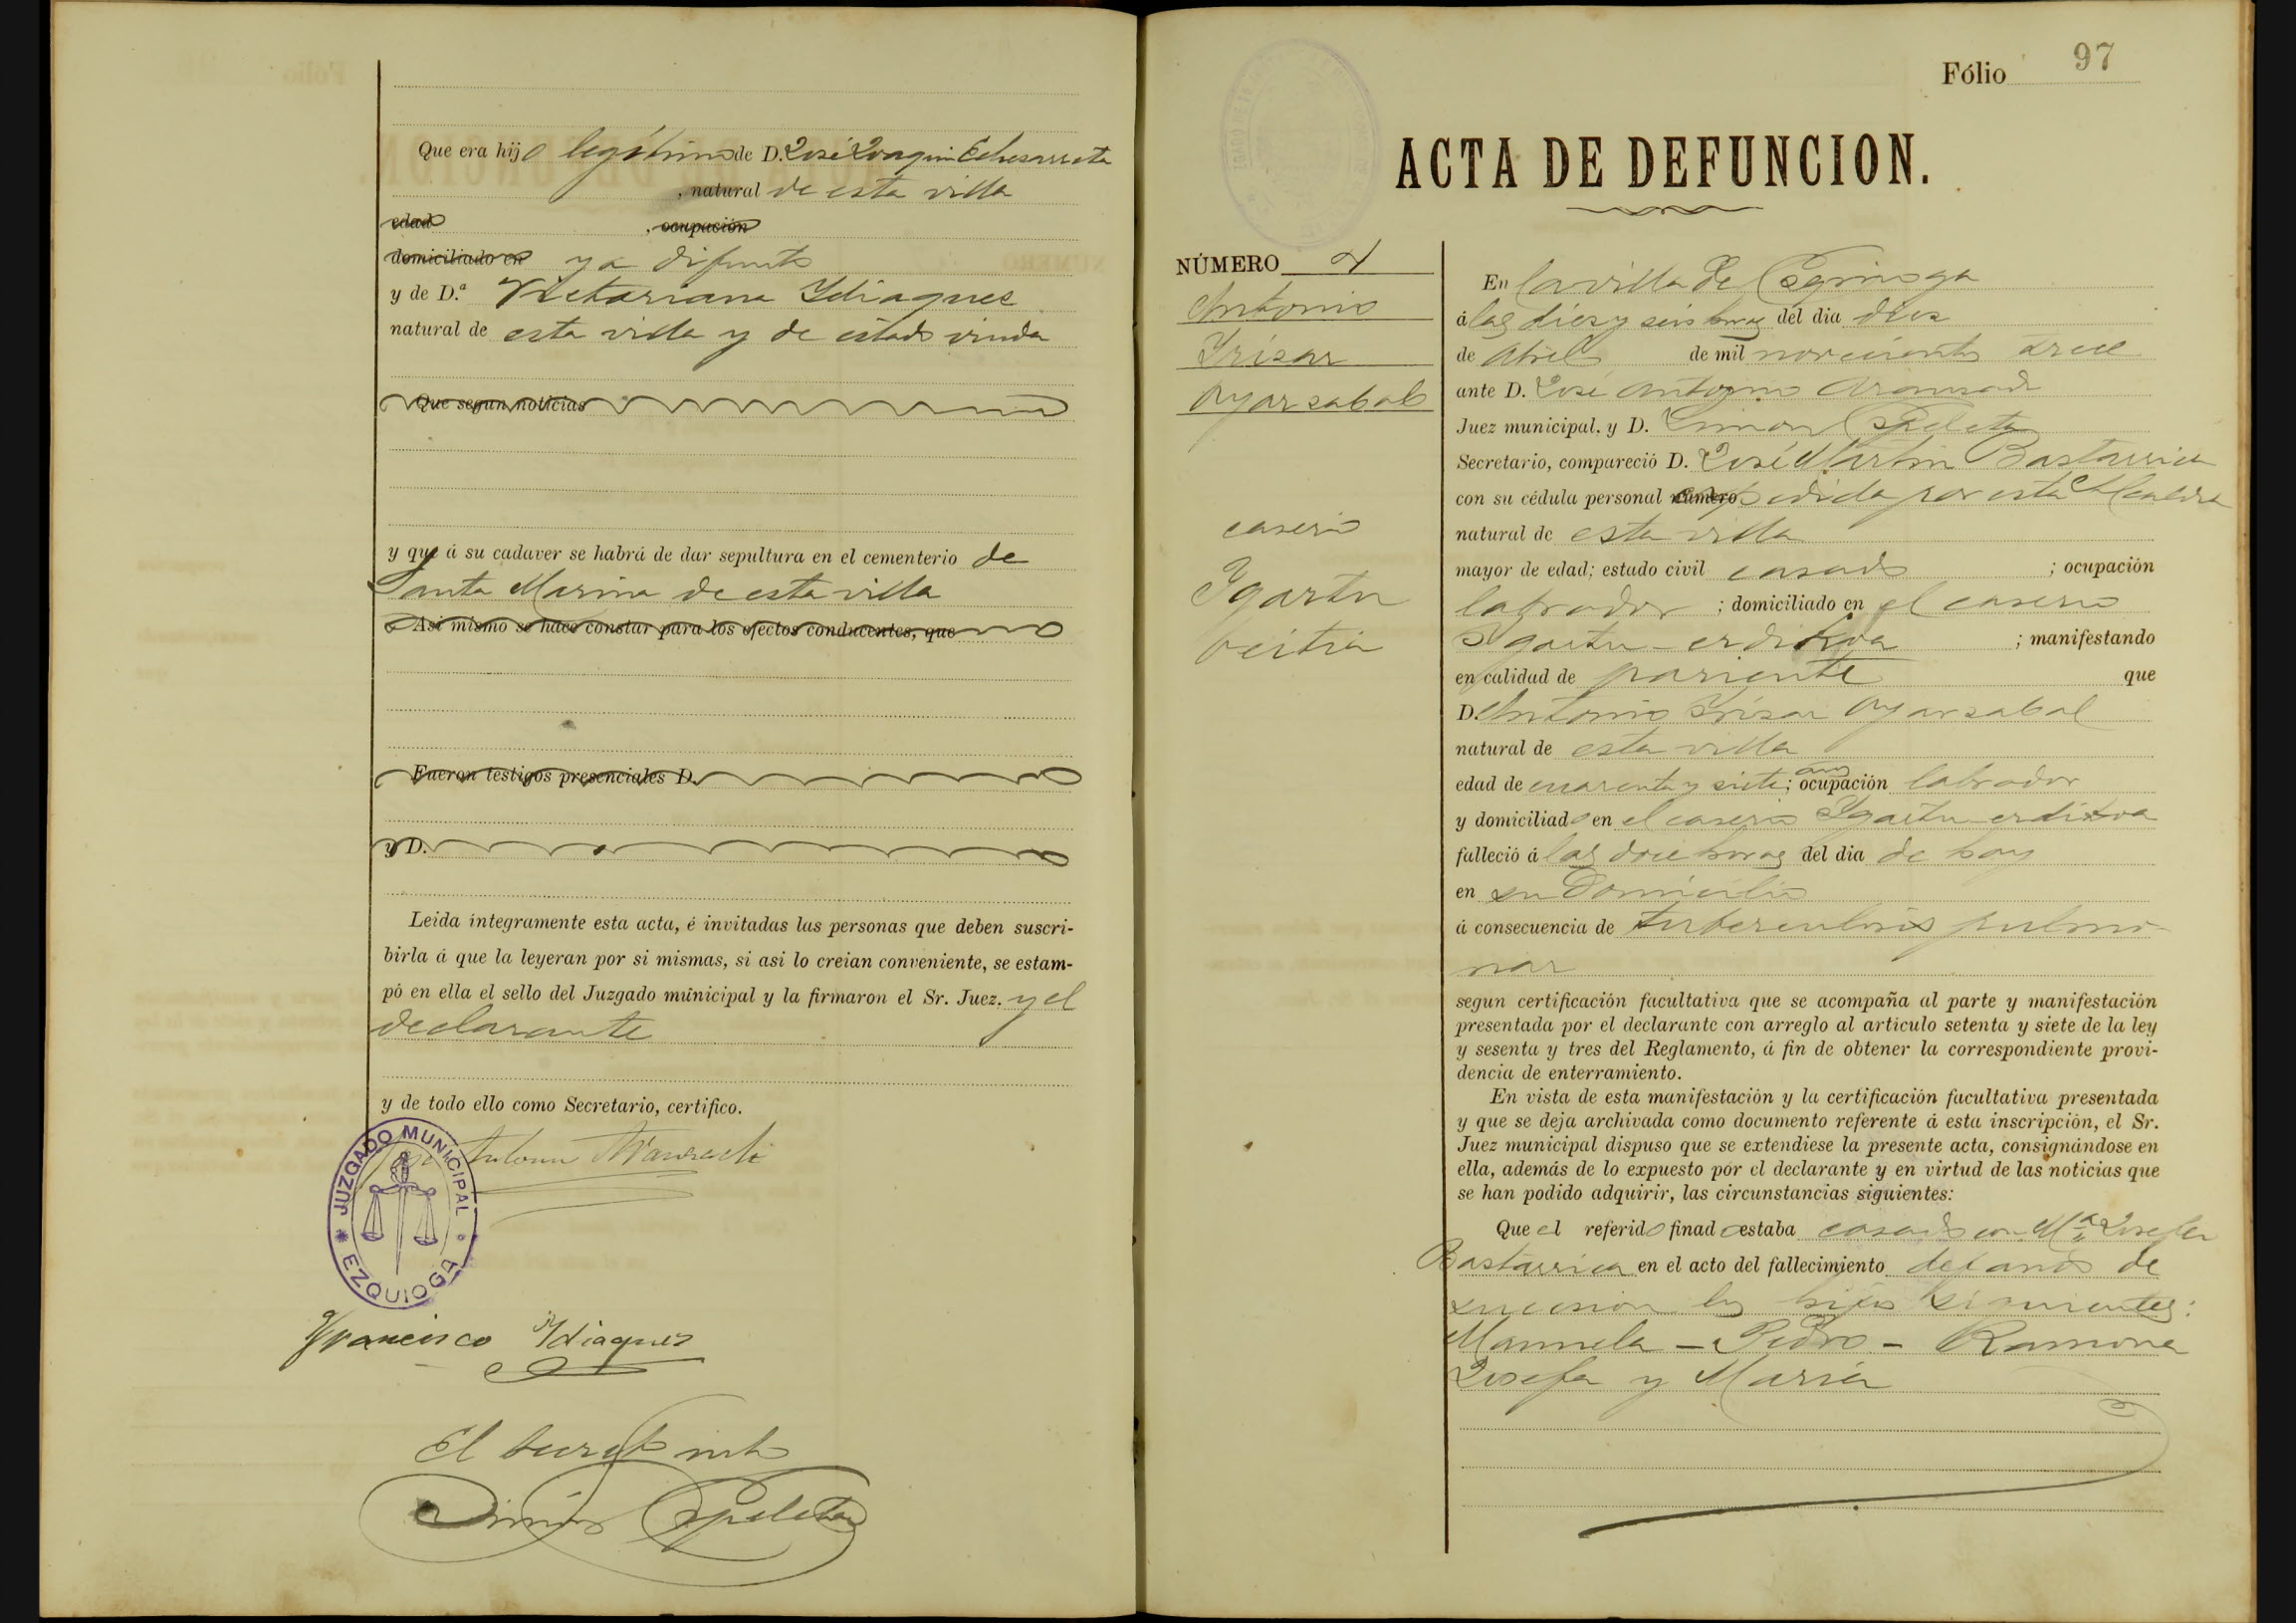 Que era hijo legítimo de D. José Joaquin Echesarreta
, natural de esta villa
edad , ocupación
domiciliado en ya difunto
y de D.ª Victoriana Ydiaquez
natural de esta villa y de estado viuda
Que segun noticias
y que á su cadaver se habrá de dar sepultura en el cementerio de
Santa Marina de esta villa
Así mismo se hace constar para los efectos conducentes, que
Fueron testigos presenciales D.
y D.
Leida íntegramente esta acta, é invitadas las personas que deben suscri-
birla á que la leyeran por si mismas, si asi lo creian conveniente, se estam-
pó en ella el sello del Juzgado municipal y la firmaron el Sr. Juez. y el
declarante
y de todo ello como Secretario, certifico.
José Antonio Aramsadi
JUZGADO MUNICIPAL
EZQUIOGA
Francisco Ydiaquez
El Secretº intº
Simón Ezpeleta
Fólio 97
ACTA DE DEFUNCION.
NÚMERO 4
Antonio
Yrísar
Oyarsabal
caserio
Ygartu
beitia
En la villa de Ezquioga
á las diez y seis horas del dia dies
de Abril de mil novecientos trece
ante D. José Antonio Aramsadi
Juez municipal, y D. Simon Ezpeleta
Secretario, compareció D. José Martin Bastarrica
con su cédula personal número expedida por esta Alcaldia
natural de esta villa
mayor de edad; estado civil casado ; ocupación
labrador ; domiciliado en el caserio
Ygartu-erdikoa ; manifestando
en calidad de pariente que
D. Antonio Yrísar Oyarsabal
natural de esta villa
edad de cuarenta y siete años; ocupación labrador
y domiciliado en el caserio Ygartu-erdikoa
falleció á las doce horas del dia de hoy
en su domicilio
á consecuencia de tuberculosis pulmo-
nar
segun certificación facultativa que se acompaña al parte y manifestación
presentada por el declarante con arreglo al artículo setenta y siete de la ley
y sesenta y tres del Reglamento, á fin de obtener la correspondiente provi-
dencia de enterramiento.
En vista de esta manifestación y la certificación facultativa presentada
y que se deja archivada como documento referente á esta inscripción, el Sr.
Juez municipal dispuso que se extendiese la presente acta, consignándose en
ella, además de lo expuesto por el declarante y en virtud de las noticias que
se han podido adquirir, las circunstancias siguientes:
Que el referido finado estaba casado con Mª Josefa
Bastarrica en el acto del fallecimiento dejando de
sucesion los hijos siguientes:
Manuela - Pedro - Ramona
Josefa y María